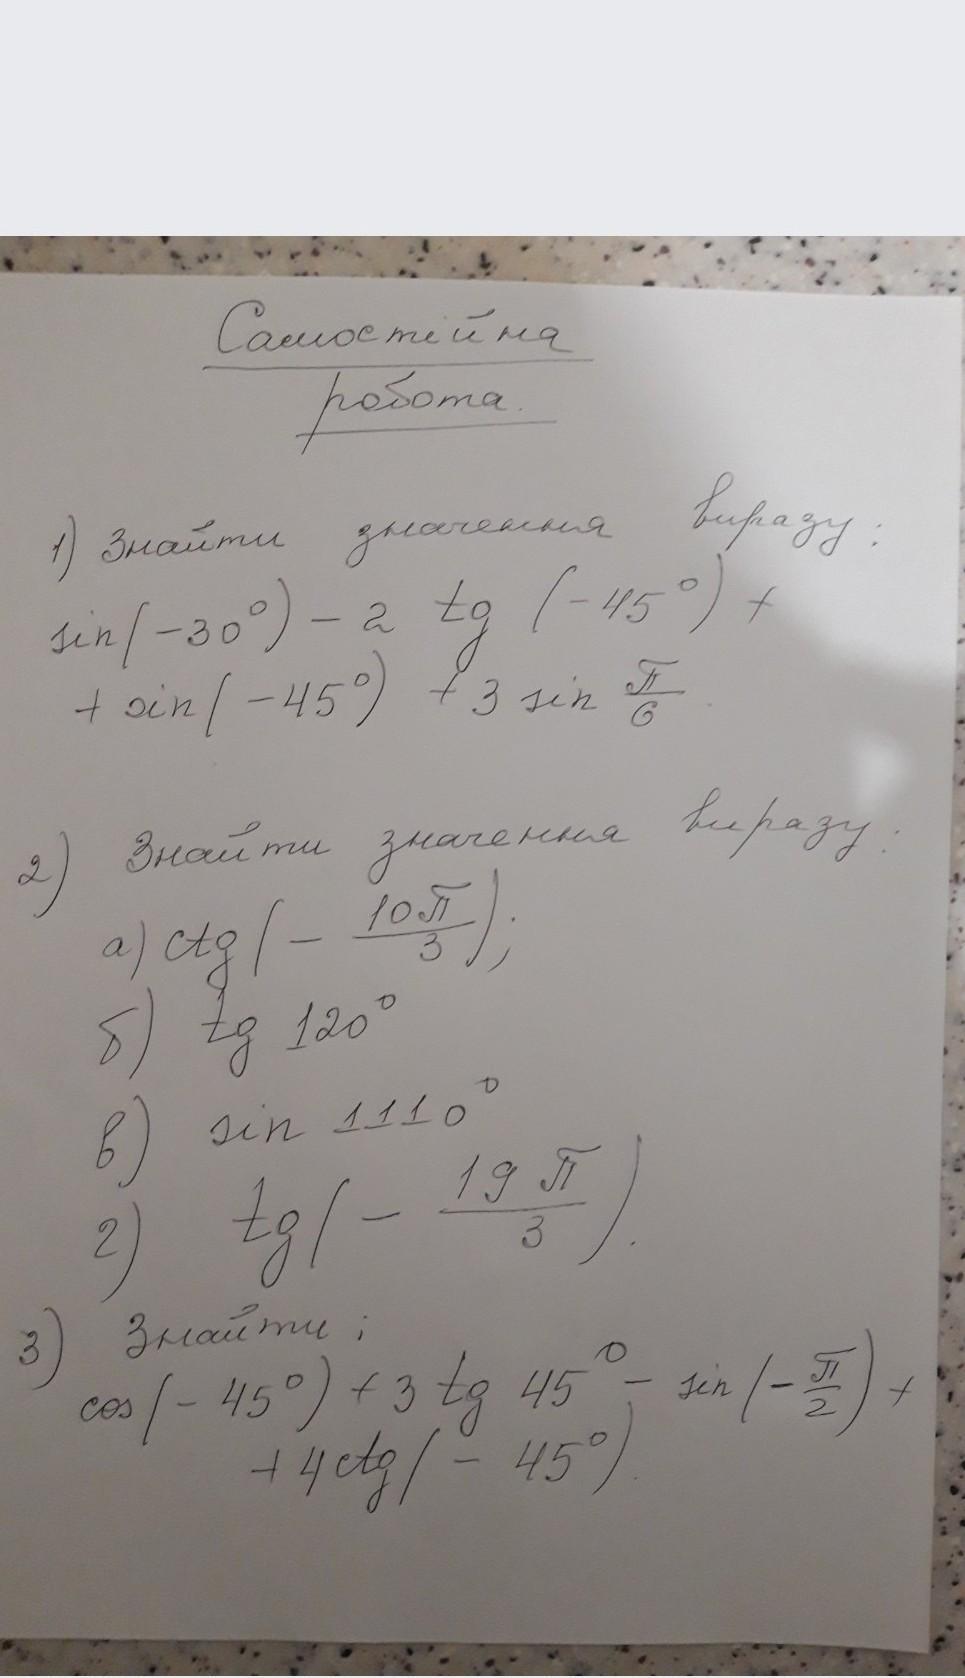 Самостійна
робота.
1) Знайти значення виразу:
sin(-30°) - 2 tg (-45°) +
+ sin(-45°) + 3 sin π/6.
2) Знайти значення виразу:
а) ctg(- 10π/3);
б) tg 120°
в) sin 1110°
г) tg(- 19π/3).
3) Знайти:
cos(-45°) + 3 tg 45° - sin(-π/2) +
+ 4ctg(- 45°).